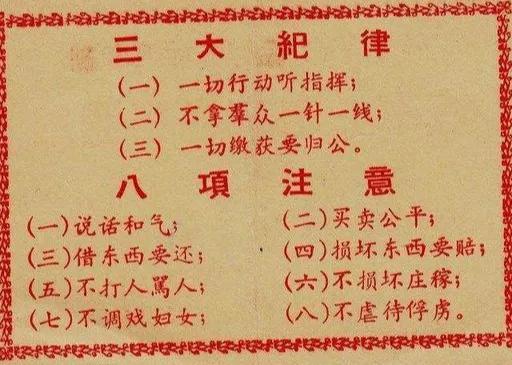 三大紀律
(一) 一切行动听指挥;
(二) 不拿羣众一针一线;
(三) 一切缴获要归公。
八項注意
(一)说话和气;
(二)买卖公平;
(三)借东西要还;
(四)损坏东西要赔;
(五)不打人駡人;
(六)不损坏庄稼;
(七)不调戏妇女;
(八)不虐待俘虏。